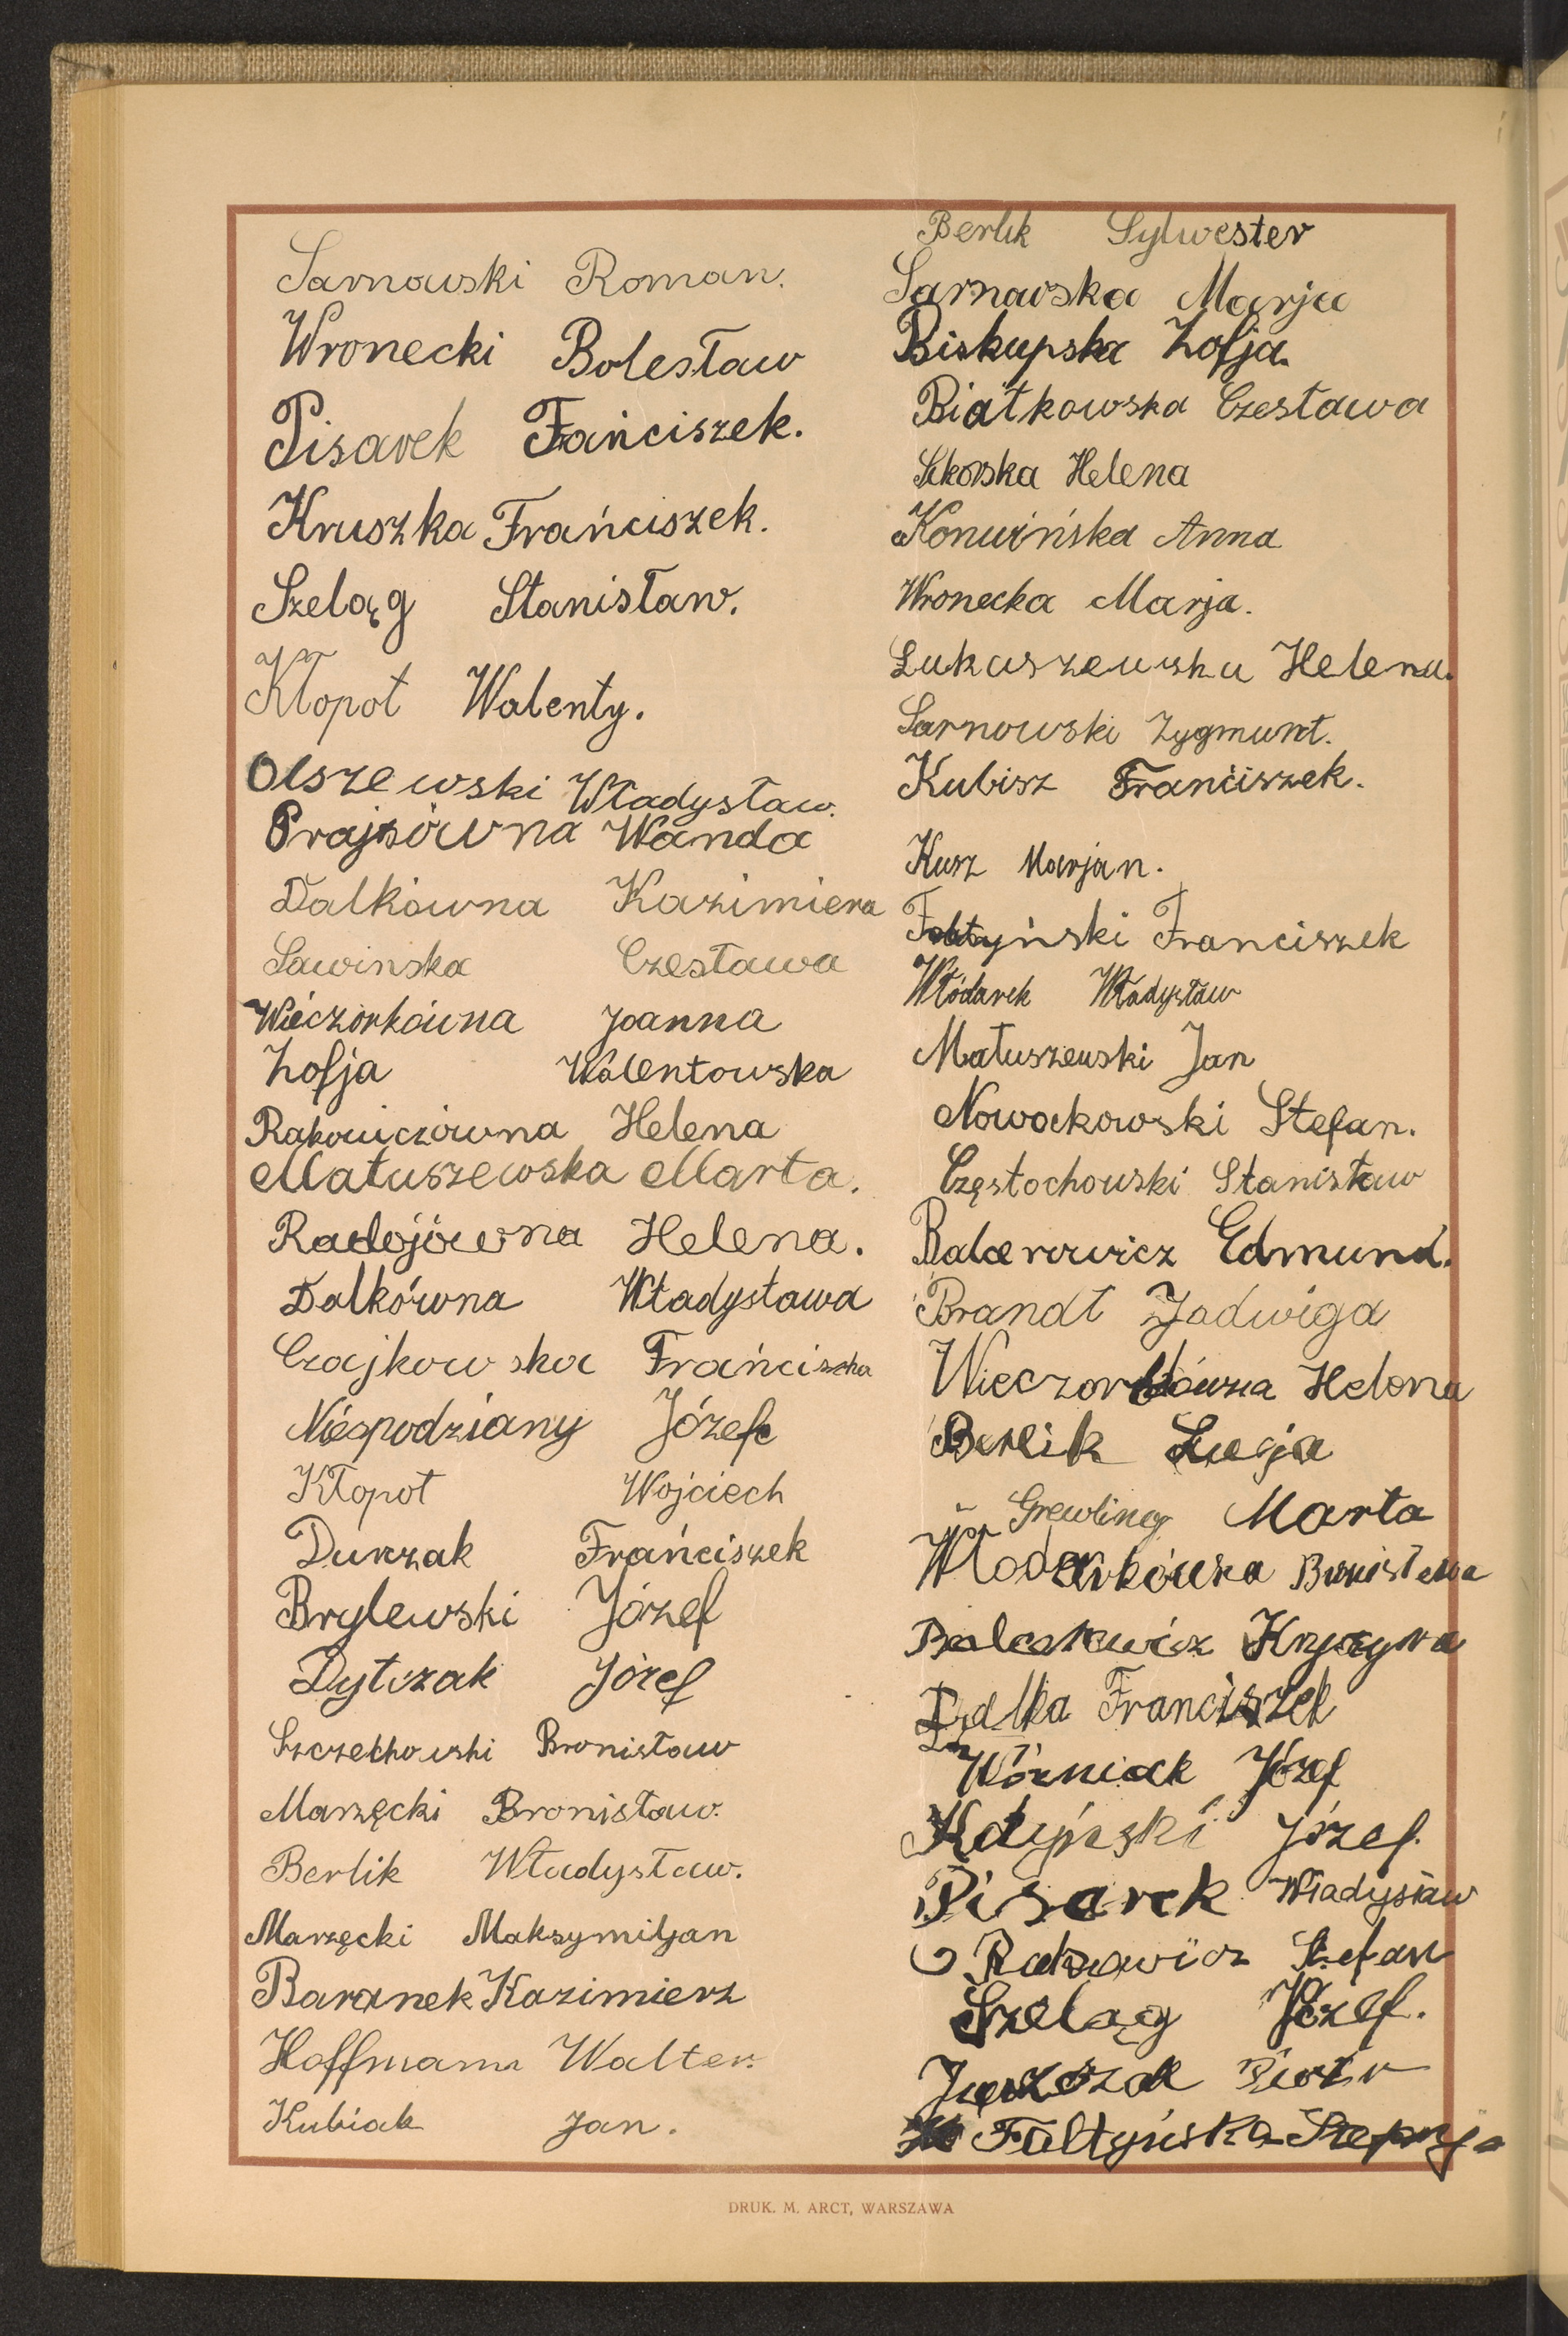 Sarnowski Roman.
Wronecki Bolesław
Pisarek Frańciszek.
Kruszka Frańciszek.
Szeląg Stanisław.
Kłopot Walenty.
Olszewski Władysław.
Prajsówna Wanda
Dalkówna Kazimiera
Sawinska Czesława
Wieczorkówna Joanna
Zofja Walentowska
Rakowiczówna Helena
Matuszewska Marta.
Radojówna Helena.
Dalkówna Władysława
Czajkowska Frańciszka
Niespodziany Józef
Kłopot Wojciech
Durczak Frańciszek
Brylewski Józef
Dytczak Józef
Szczechowski Bronisław
Marzęcki Bronisław.
Berlik Władysław.
Marzęcki Maksymiljan
Baranek Kazimierz
Hoffmann Walter.
Kubiak Jan.
Berlik Sylwester
Sarnowska Marja
Biskupska Zofja.
Białkowska Czesława
Sikorska Helena
Konwińska Anna
Wronecka Marja.
Łukaszewska Helena.
Sarnowski Zygmunt.
Kubisz Franciszek.
Kusz Marjan.
Fałtyński Franciszek
Włódarek Władysław
Matuszewski Jan
Nowackowski Stefan.
Częstochowski Stanisław
Balcerowicz Edmund.
Brandt Jadwiga
Wieczorkówna Helena
Berlik Łucja
Grewling Marta
Włodarkówna Bronisława
Krystyna
Dalka Franciszek
Woźniak Józef
Józef.
Pisarek Władysław
Stefan
Szeląg Józef.
Piotr
Fałtyńska Stefanja
DRUK. M. ARCT, WARSZAWA